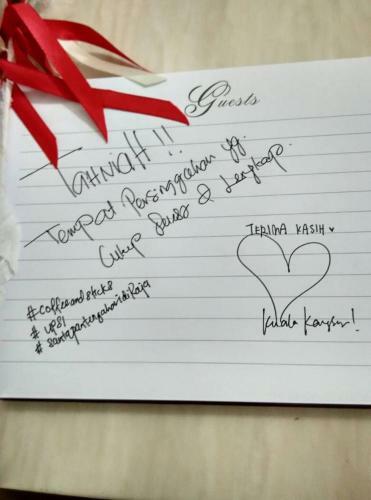 Guests
TAHNIAH!!
Tempat Persinggahan yg.
Cukup Selesa & Lengkap.
TERIMA KASIH
Kuala Kangsar!
#coffeeandsticks
# UPSI
# santapantengaharidiRaja